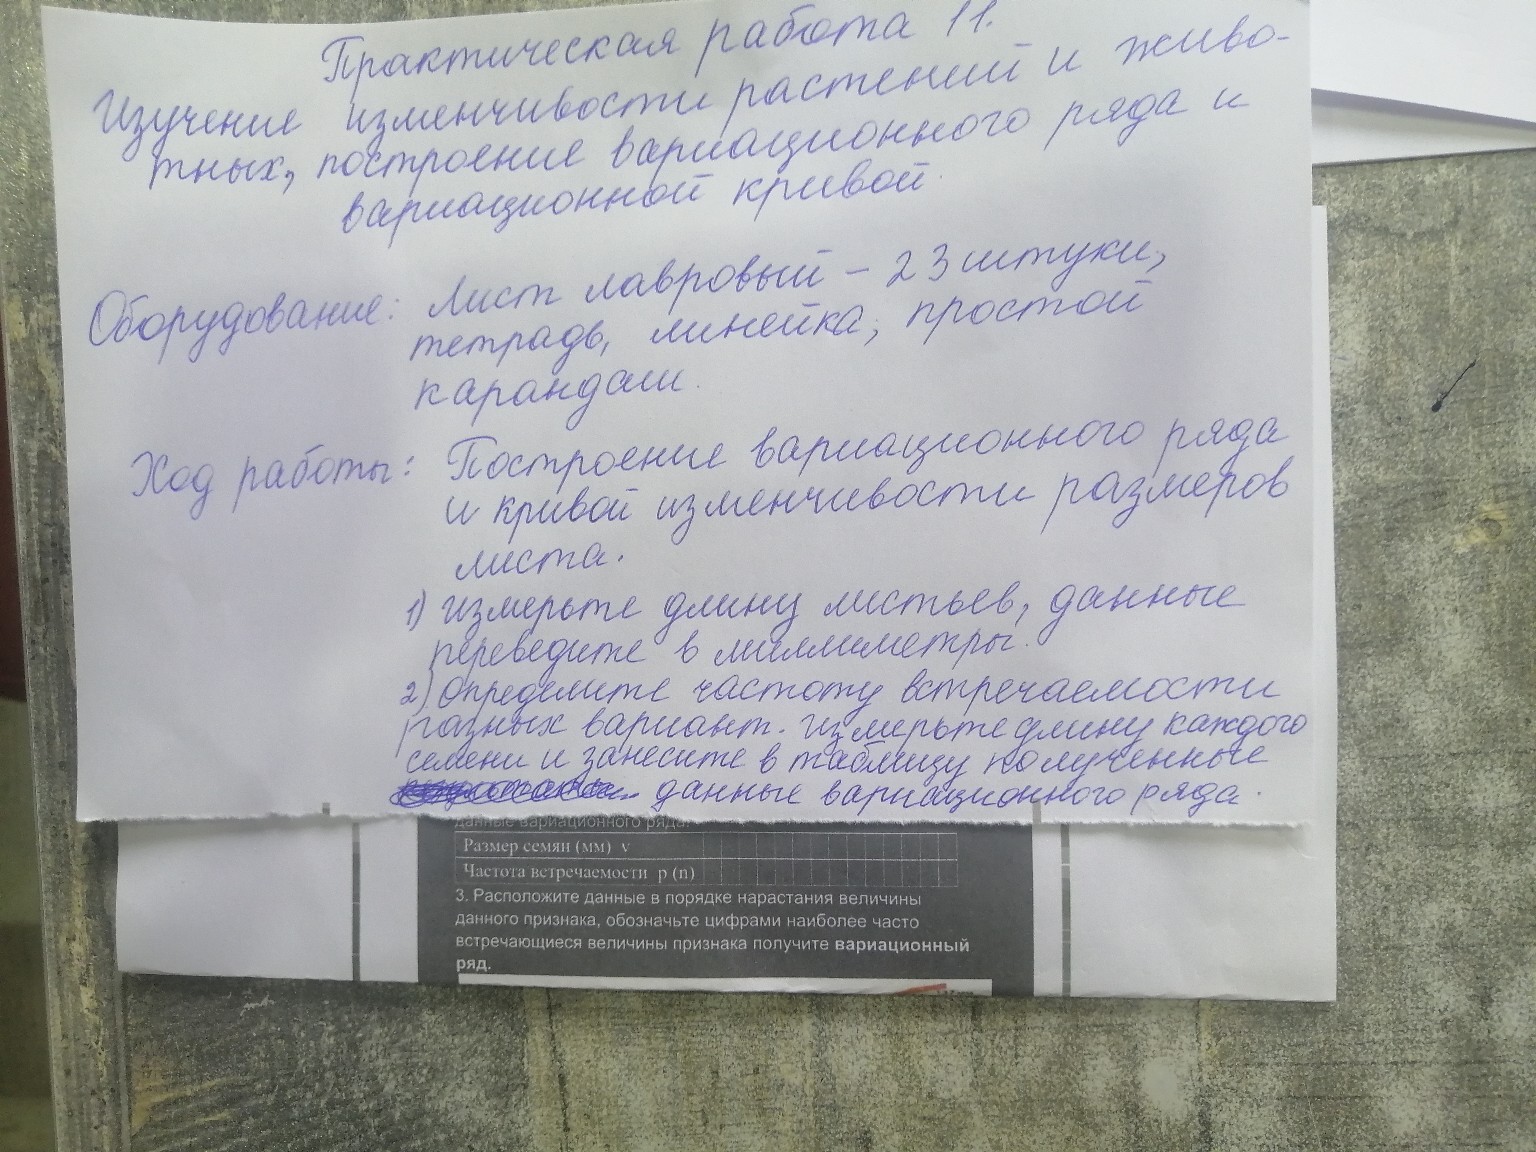 Практическая работа 11.
Изучение изменчивости растений и живо-
тных, построение вариационного ряда и
вариационной кривой.
Оборудование: Лист лавровый – 23 штуки,
тетрадь, линейка, простой
карандаш.
Ход работы: Построение вариационного ряда
и кривой изменчивости размеров
листа.
1) Измерьте длину листьев, данные
переведите в миллиметры.
2) Определите частоту встречаемости
разных вариант. Измерьте длину каждого
семени и занесите в таблицу полученные
данные вариационного ряда.
данные вариационного ряда.
Размер семян (мм) v
Частота встречаемости p (n)
3. Расположите данные в порядке нарастания величины
данного признака, обозначьте цифрами наиболее часто
встречающиеся величины признака получите вариационный
ряд.